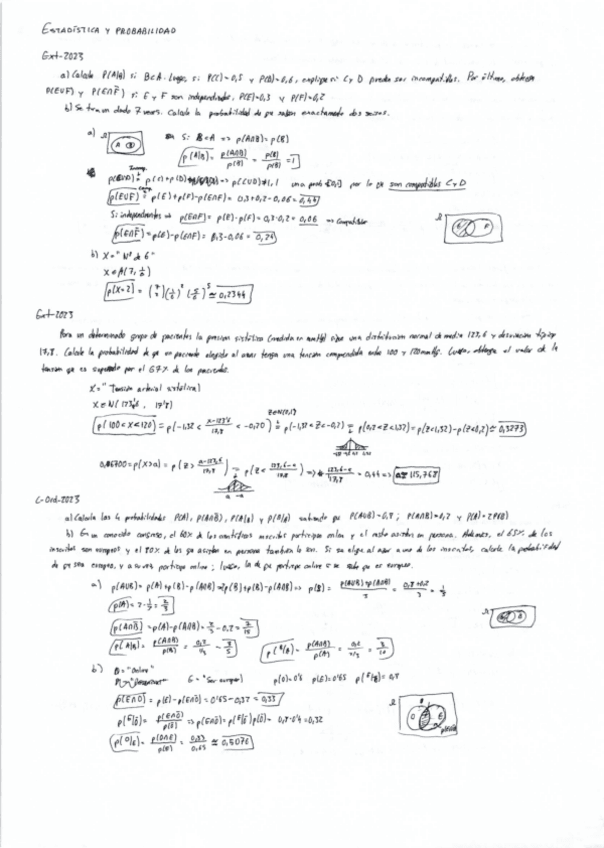 ESTADÍSTICA Y PROBABILIDAD
Ext-2023
a) Calcula P(A|B) si B⊂A. Luego, si P(C)=0,5 y P(D)=0,6, explique si C y D pueden ser incompatibles. Por último, obtenga
P(E∪F) y P(E∩F̄) si E y F son independientes, P(E)=0,3 y P(F)=0,2
b) Se tira un dado 7 veces. Calcula la probabilidad de que salgan exactamente dos seises.
a)
Ω
A B
Si B⊂A => p(A∩B)=p(B)
p(A|B) = p(A∩B)/p(B) = p(B)/p(B) = 1
por lo que son compatibles C y D
p(E∪F) = p(E)+p(F)-p(E∩F) = 0,3+0,2-0,06 = 0,44
Si independientes => p(E∩F) = p(E)·p(F) = 0,3·0,2 = 0,06 => Compatibles
p(E∩F̄) = p(E)-p(E∩F) = 0,3-0,06 = 0,24
b) X = "Nº de 6"
p(X=2) = (7 2)(1/6)² (5/6)⁵ ≈ 0,2344
Ext-2023
Para un determinado grupo de pacientes la presión sistólica (medida en mmHg) sigue una distribución normal de media 123,6 y desviación típica
17,8. Calcule la probabilidad de que un paciente elegido al azar tenga una tensión comprendida entre 100 y 120 mmHg. Luego, obtenga el valor de la
tensión que es superado por el 67% de los pacientes.
X = "Tensión arterial sistólica"
X∈N(123'6, 17'8)
Z∈N(0,1)
p(100<X<120) = p(-1,32 < < -0,20) = p(-1,32<Z<-0,2) = p(0,2<Z<1,32) = p(Z<1,32)-p(Z<0,2) ≈ 0,3273
= p(X>a) = p(Z> a-123,6/17,8) = p(Z< 123,6-a/17,8) => 123,6-a/17,8 = 0,44 => a≈115,768
-a a
C-Ord-2023
a) Calcula las 4 probabilidades P(A), P(A∩B̄), P(A|B) y P(B|A) sabiendo que P(A∪B)=0,8; P(A∩B)=0,2 y P(A)=2P(B)
b) En un conocido congreso, el 60% de los científicos inscritos participan online y el resto asisten en persona. Además, el 65% de los
inscritos son europeos y el 80% de los que asisten en persona también lo son. Si se elige al azar a uno de los inscritos, calcule la probabilidad
de que sea europeo, y a su vez participe online; luego, la de que participe online si se sabe que es europeo.
a) p(A∪B) = p(A)+p(B)-p(A∩B) = 2p(B)+p(B)-p(A∩B) => p(B) = p(A∪B)+p(A∩B)/3 = 0,8+0,2/3 = 1/3
p(A) = 2·1/3 = 2/3
p(A∩B̄) = p(A)-p(A∩B) = 2/3 - 0,2 = 7/15
p(A|B) = p(A∩B)/p(B) = 0,2/1/3 = 3/5
p(B/A) = p(A∩B)/p(A) = 0,2/2/3 = 3/10
b) O = "Online"
E = "Ser europeo"
p(O)=0'6 p(E)=0'65 p(E/Ō)=0,8
p(E∩O) = p(E)-p(E∩Ō) = 0'65-0,32 = 0,33
p(E/Ō) = p(E∩Ō)/p(Ō) => p(E∩Ō) = p(E/Ō)p(Ō) = 0,8·0'4 = 0,32
p(O/E) = p(O∩E)/p(E) = 0,33/0,65 ≈ 0,5076